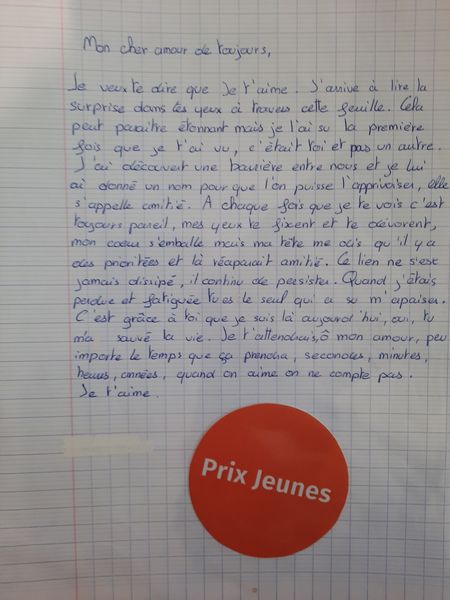 Mon cher amour de toujours,
Je veux te dire que Je t'aime. J'arrive à lire la
surprise dans tes yeux à travers cette feuille. Cela
peut paraitre étonnant mais je l'ai su la première
fois que je t'ai vu, c'était toi et pas un autre.
J'ai découvert une barrière entre nous et je lui
ai donné un nom pour que l'on puisse l'apprivoiser, elle
s'appelle amitié. A chaque fois que je te vois c'est
toujours pareil, mes yeux te fixent et te dévorent,
mon coeur s'emballe mais ma tête me dis qu'il y a
des prioritées et là réaparait amitié. Ce lien ne s'est
jamais dissipé, il continu de persister. Quand j'étais
perdue et fatiguée tu es le seul qui a su m'apaiser.
C'est grâce à toi que je suis là aujourd'hui, oui, tu
m'a sauvé la vie. Je t'attendrais, ô mon amour, peu
importe le temps que ça prendra, secondes, minutes,
heures, années, quand on aime on ne compte pas.
Je t'aime.
Prix Jeunes